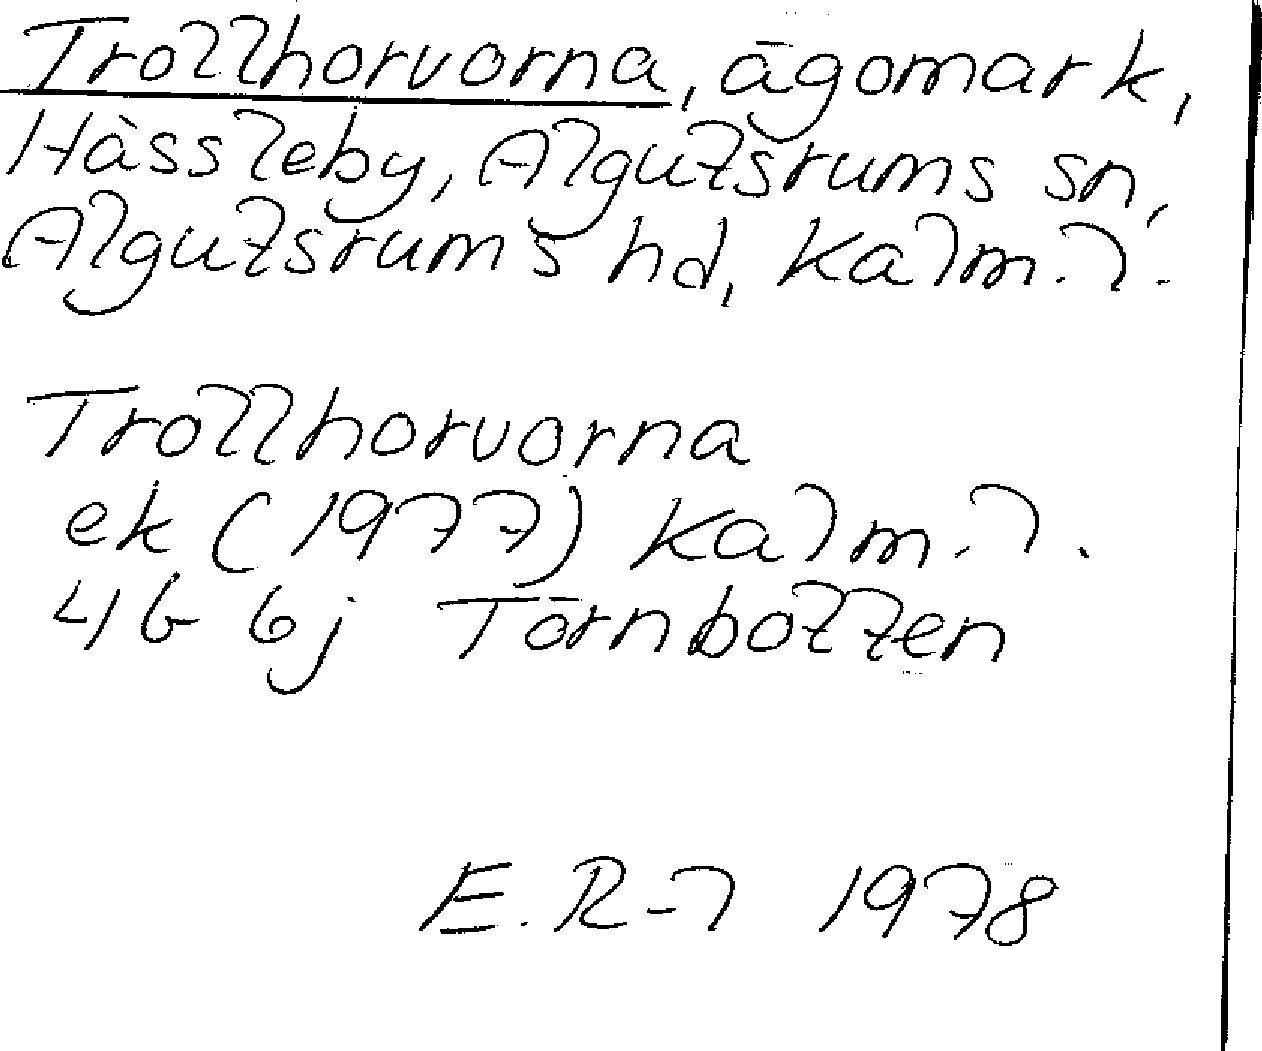 Trollhorvorna, ägomark,
Hässleby, Algutsrums sn,
Algutsrums hd, Kalm.l.
Trollhorvorna
ek (1977) Kalm.l.
4G 6j Törnbotten
E.R-l 1978